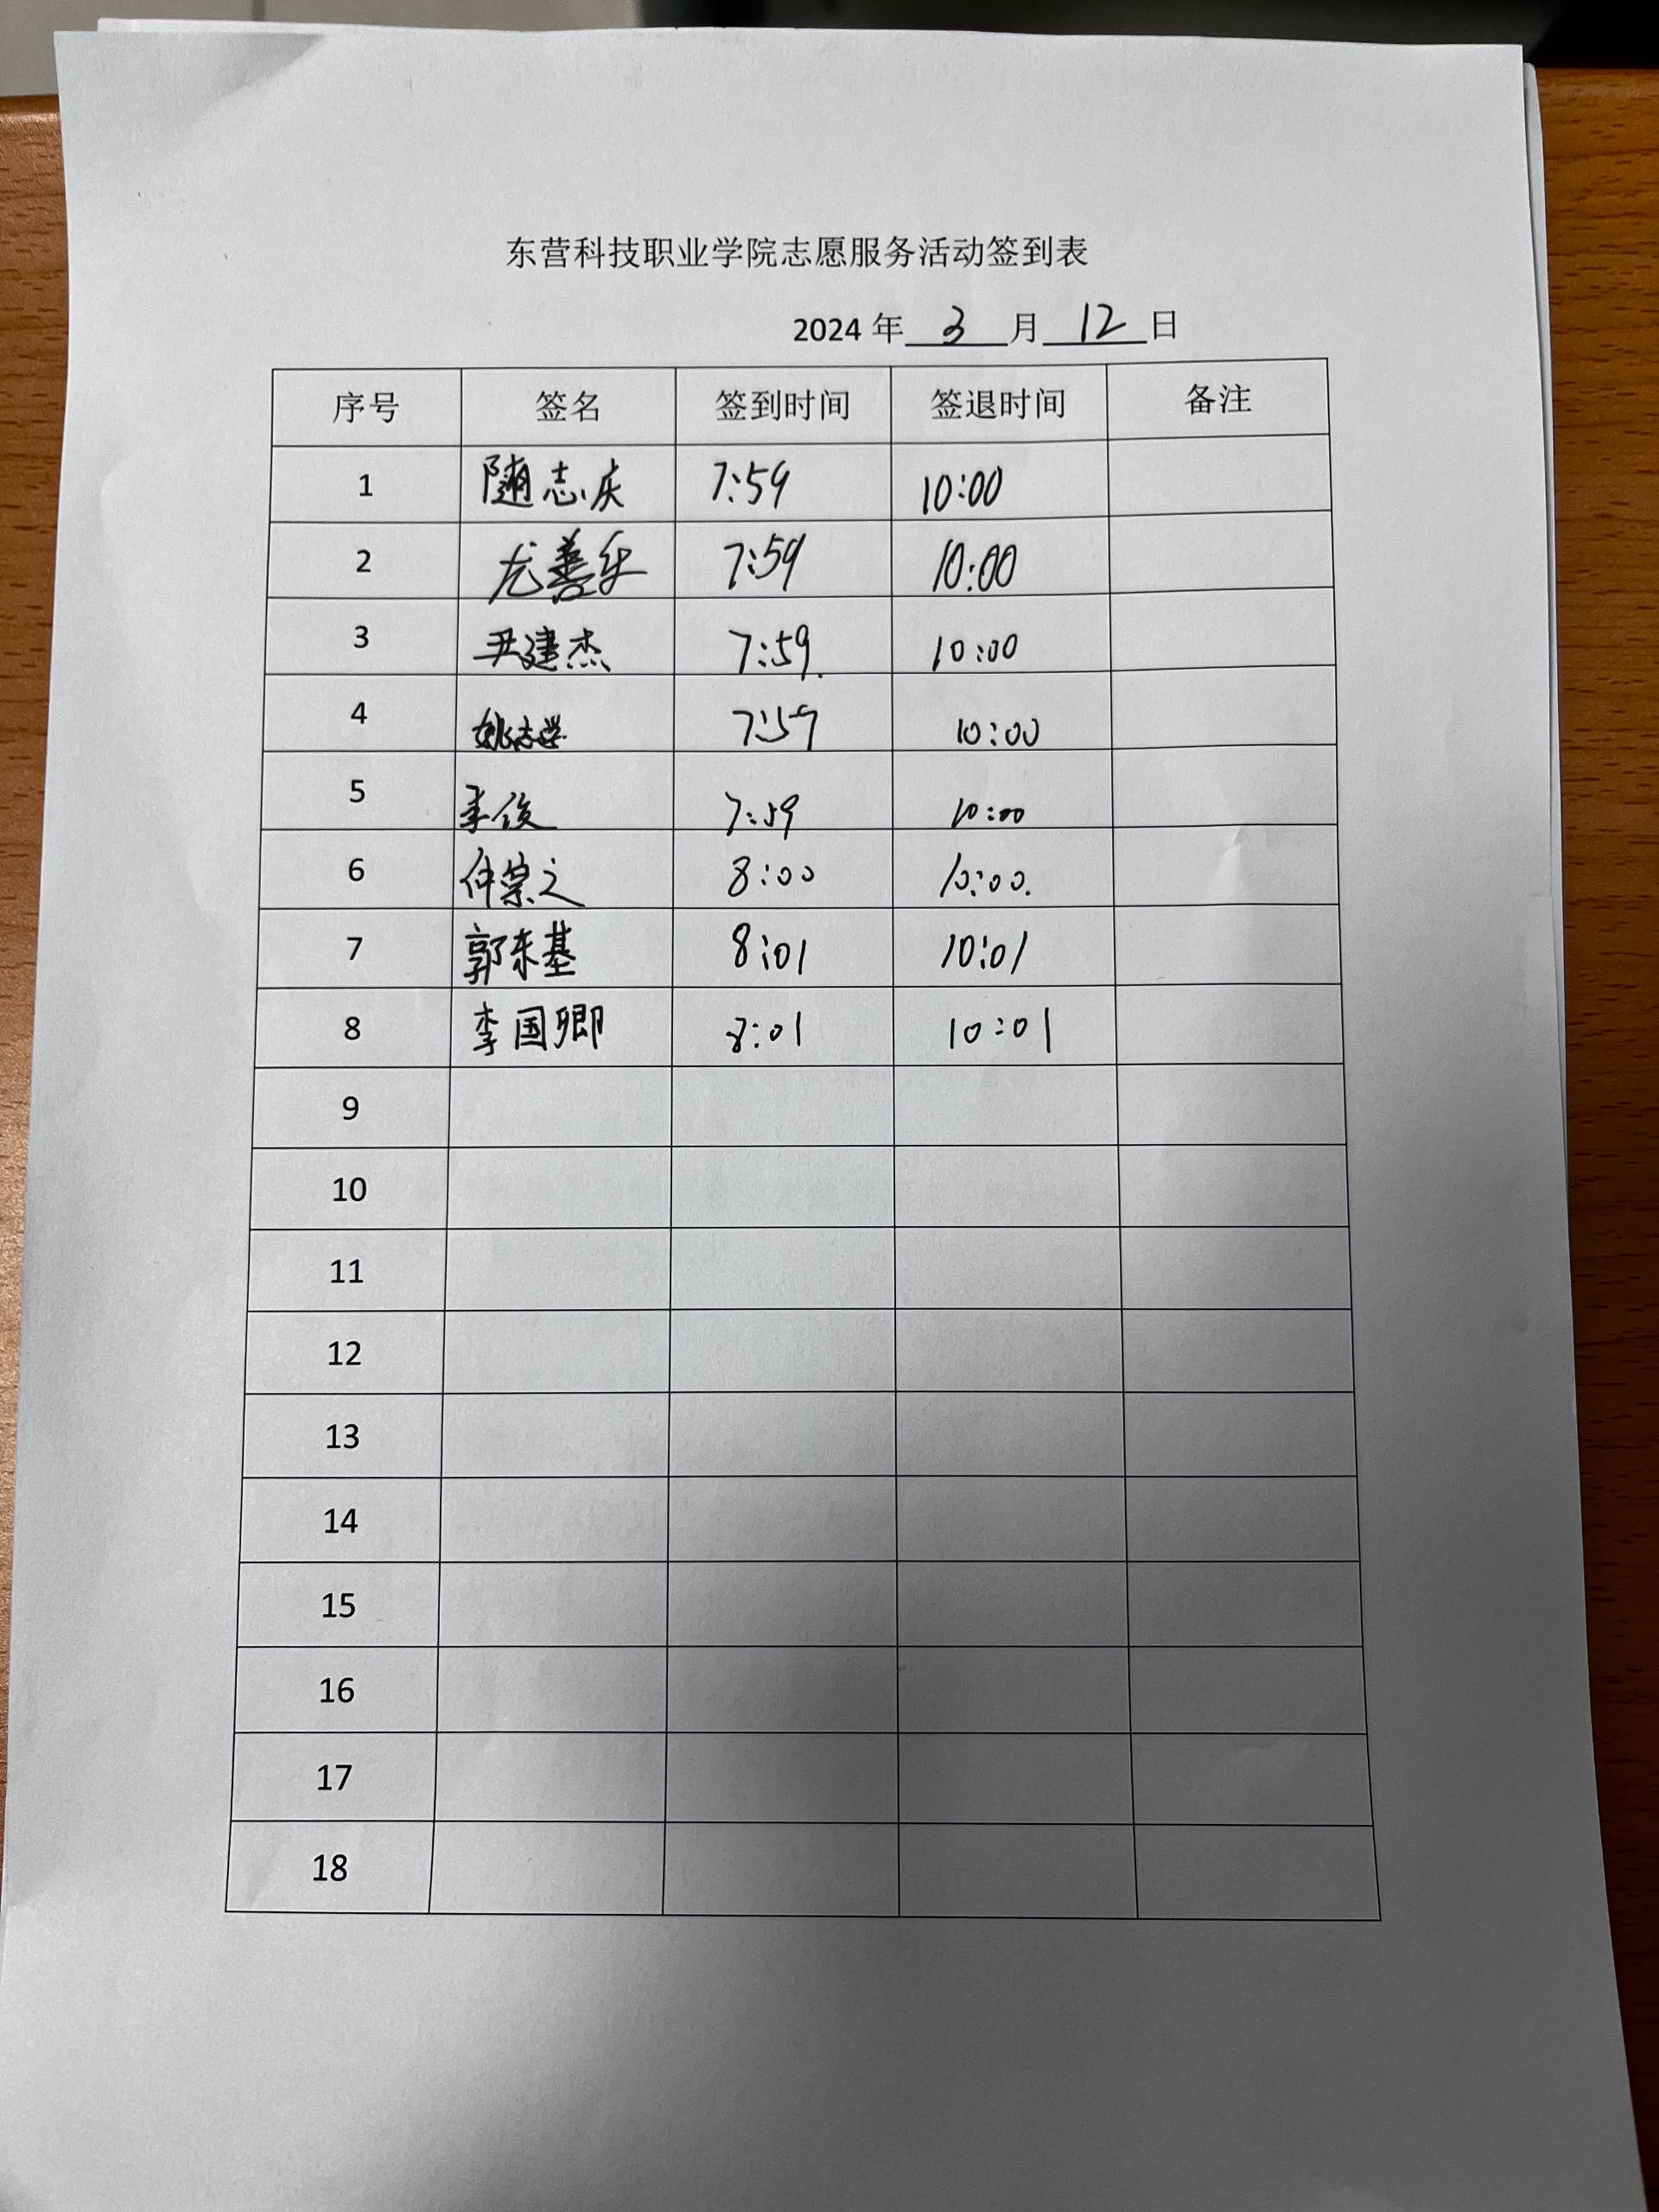 东营科技职业学院志愿服务活动签到表
2024 年 3 月 12 日
序号 签名 签到时间 签退时间 备注
1 随志庆 7:59 10:00
2 尤善乐 7:59 10:00
3 尹建杰 7:59. 10:00
4 姚志学 7:59 10:00
5 季俊 7:59 10:00
6 仲崇之 8:00 10:00.
7 郭东基 8:01 10:01
8 李国卿 8:01 10:01
9
10
11
12
13
14
15
16
17
18